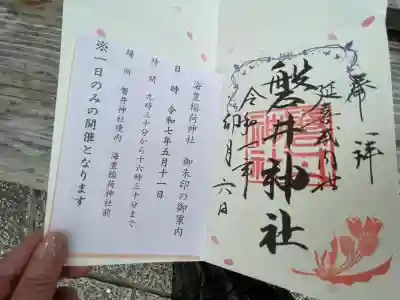 海豊稲荷神社　御朱印の御案内
日時　令和七年五月十一日
時間　九時三十分から十六時三十分まで
場所　磐井神社境内　海豊稲荷神社前
※一日のみの開催となります
奉拝
延喜式内社
磐井神社
令和
卯月六日